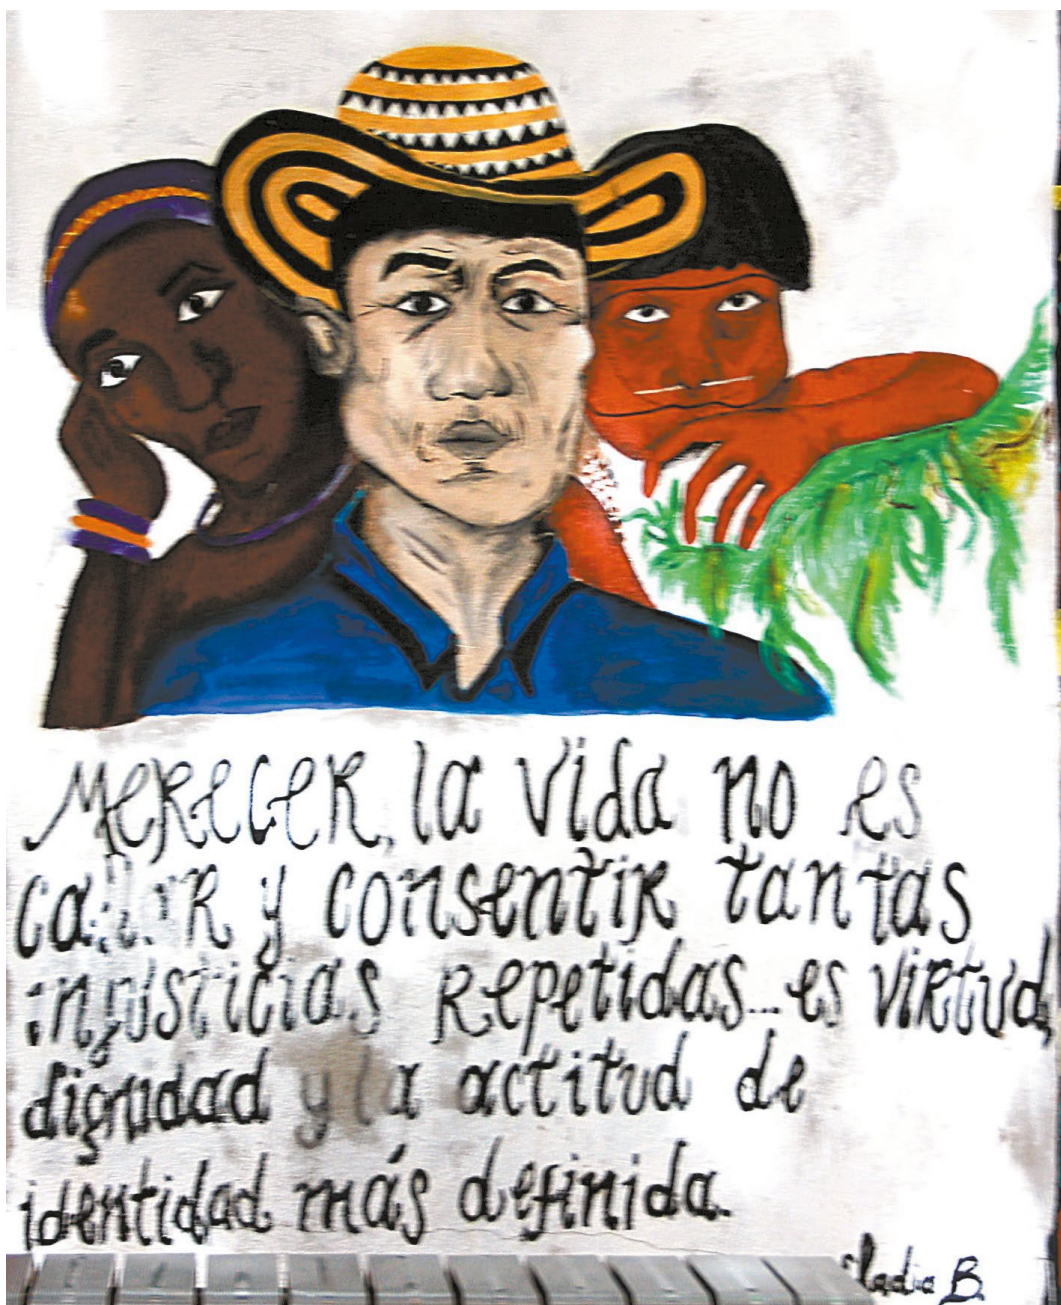 Merecer, la vida no es
callar y consentir tantas
injusticias repetidas... es virtud,
dignidad y la actitud de
identidad más definida.
B.